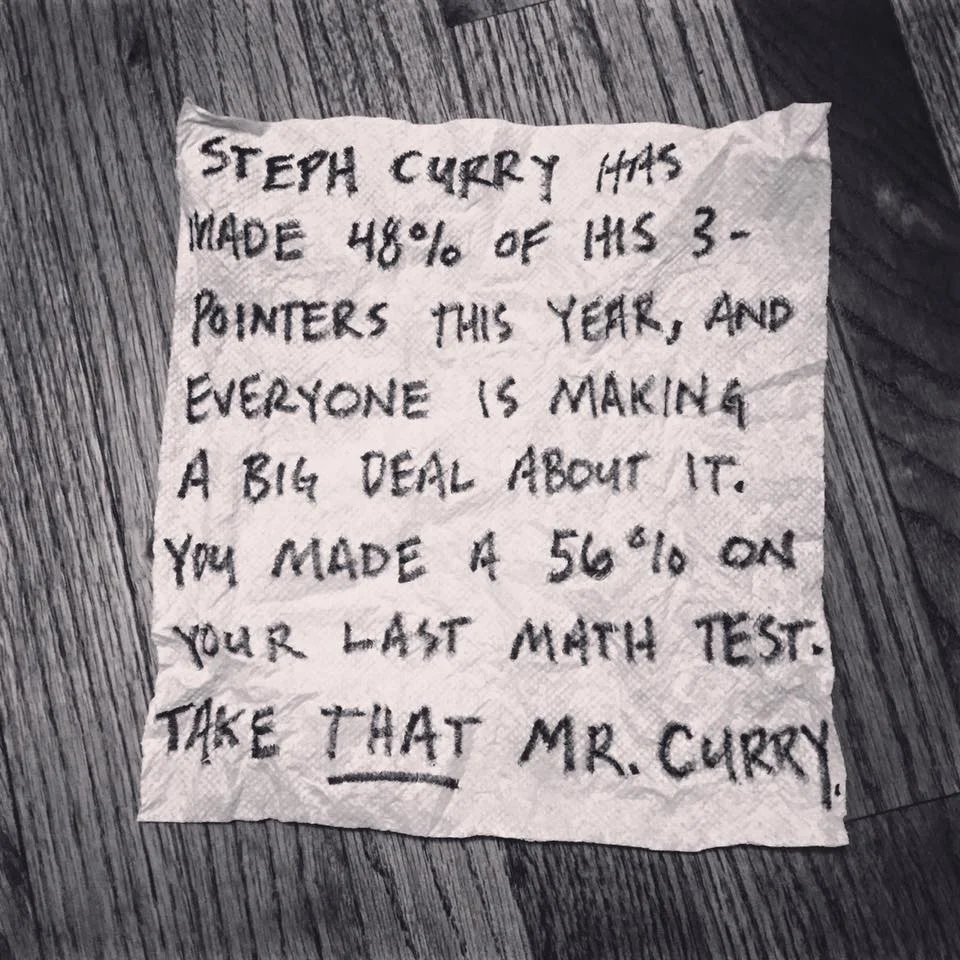 STEPH CURRY HAS
MADE 48% OF HIS 3-
POINTERS THIS YEAR, AND
EVERYONE IS MAKING
A BIG DEAL ABOUT IT.
YOU MADE A 56% ON
YOUR LAST MATH TEST.
TAKE THAT MR. CURRY.